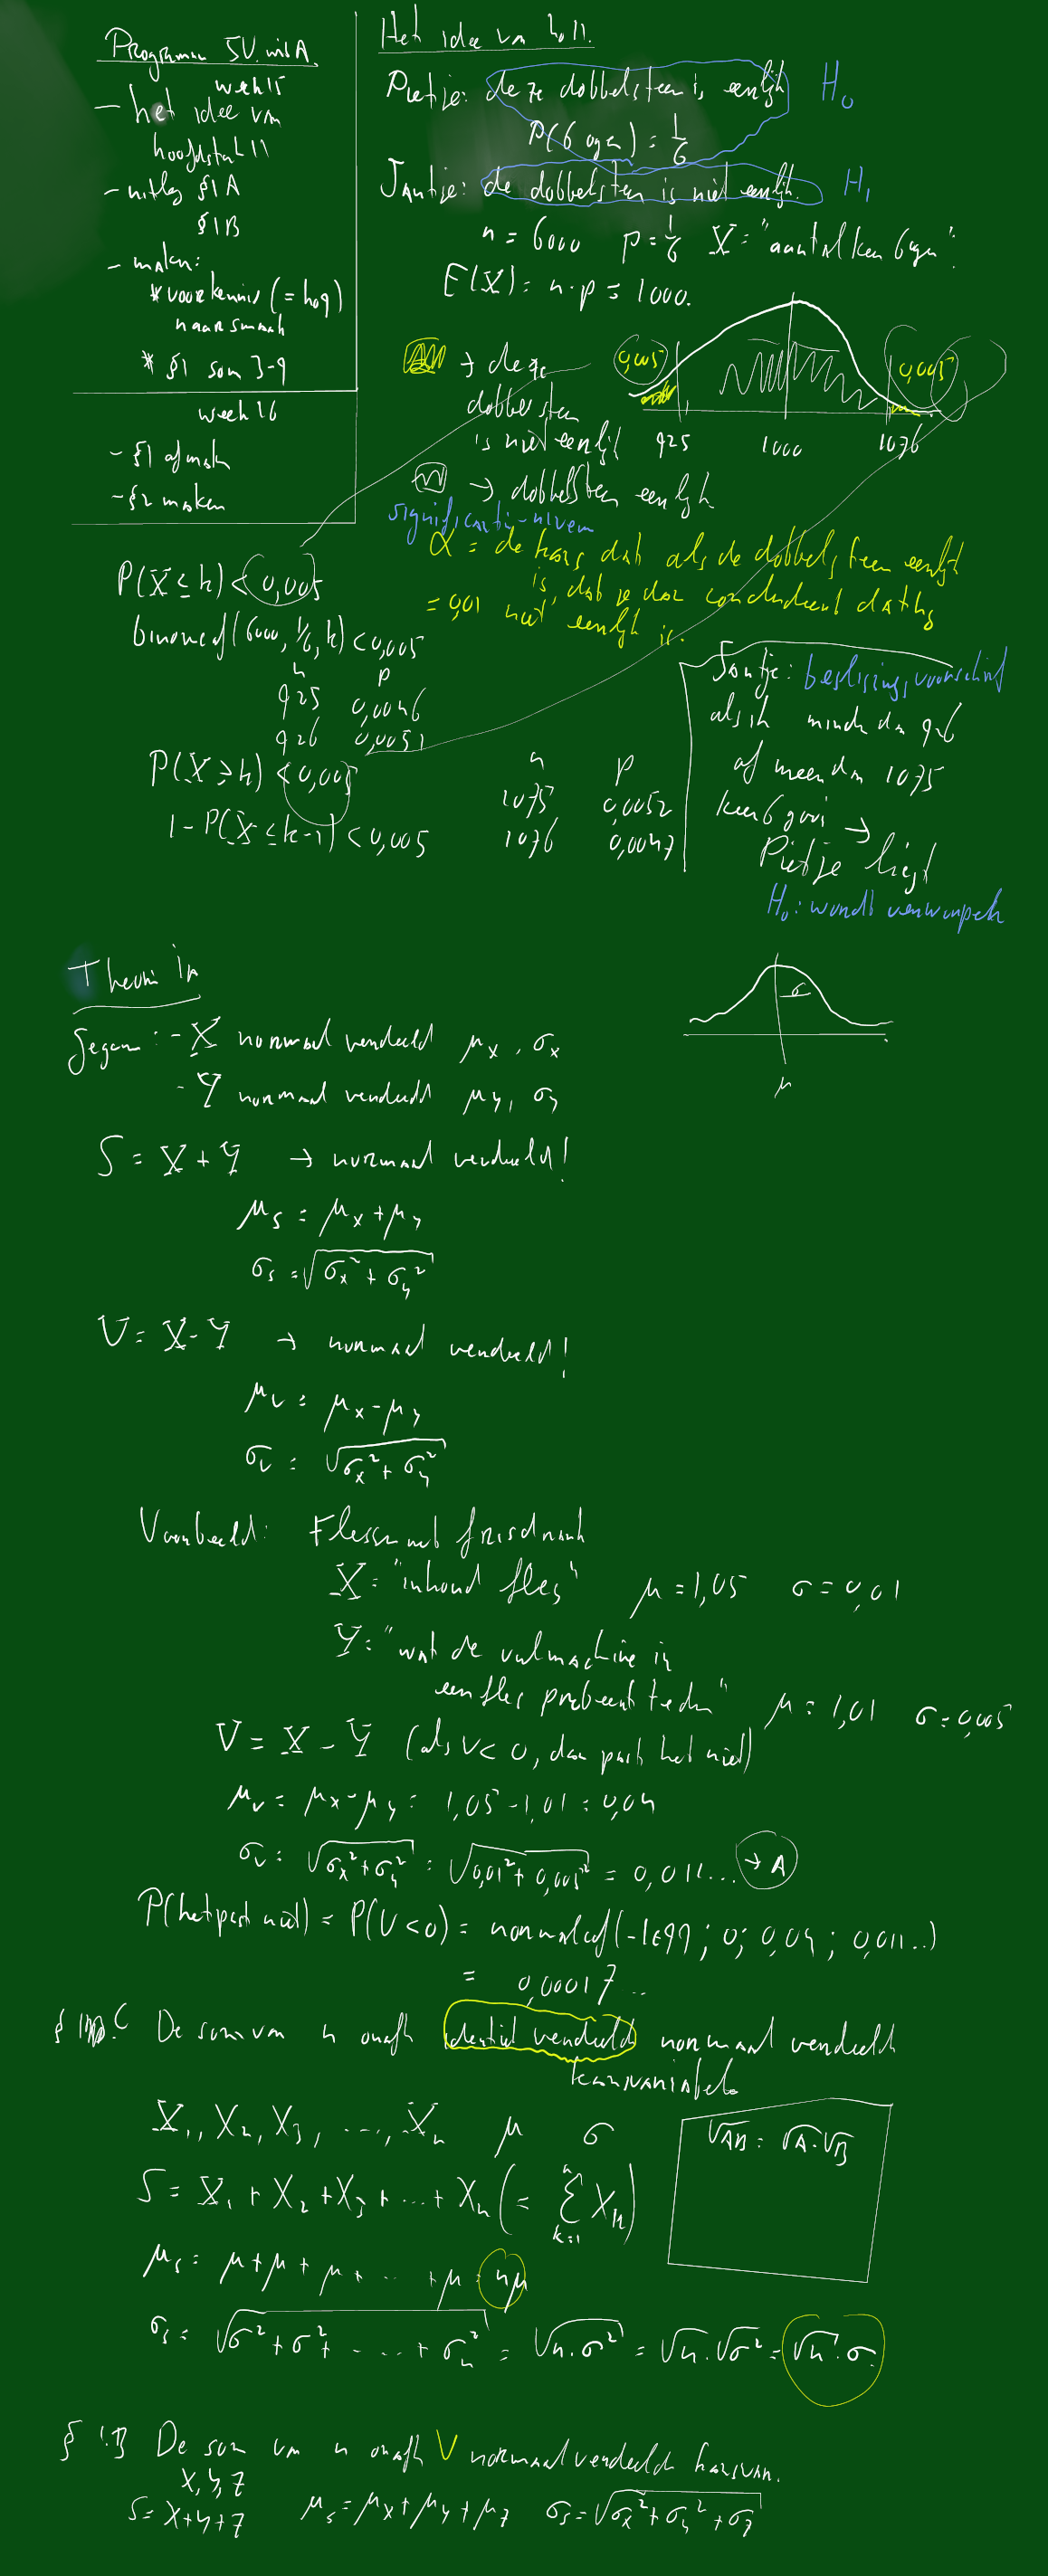 Programma 5V wisA.
week 15
- het idee van
hoofdstuk 11
- uitleg §1A
§1B
- maken:
* voorkennis (= h09)
naar smaak
* §1 som 3-9
week 16
- §1 afmaken
- §2 maken
Het idee van ho 11.
Pietje: deze dobbelsteen is eerlijk H₀
P(6 ogen) = 1/6
Jantje: de dobbelsteen is niet eerlijk. H₁
n = 6000 p = 1/6 X = "aantal keer 6 ogen".
E(X) = n·p = 1000.
→ deze
dobbelsteen
is niet eerlijk
0,005 0,005
925 1000 1076
→ dobbelsteen eerlijk
significantie-niveau
α = de kans dat als de dobbelsteen eerlijk
is, dat je dan concludeert dat hij
= 0,01 niet eerlijk is.
P(X ≤ k) < 0,005
binomcdf(6000, 1/6, k) < 0,005
k p
925 0,0046
926 0,0051
P(X ≥ k) < 0,005
1 - P(X ≤ k-1) < 0,005
k p
1075 0,0052
1076 0,0047
Jantje: beslissingsvoorschrift
als ik minder dan 926
of meer dan 1075
keer 6 gooi →
Pietje liegt
H₀: wordt verworpen
Theorie 1A
Gegeven: - X normaal verdeeld μx, σx
- Y normaal verdeeld μy, σy
σ
μ
S = X + Y → normaal verdeeld!
μs = μx + μy
σs = √(σx² + σy²)
V = X - Y → normaal verdeeld!
μv = μx - μy
σv = √(σx² + σy²)
Voorbeeld: Flessen met frisdrank
X = "inhoud fles" μ = 1,05 σ = 0,01
Y = "wat de vulmachine in
een fles probeert te doen" μ = 1,01 σ = 0,005
V = X - Y (als V < 0, dan past het niet)
μv = μx - μy = 1,05 - 1,01 = 0,04
σv = √(σx² + σy²) = √(0,01² + 0,005²) = 0,011... → A
P(het past niet) = P(V < 0) = normalcdf(-1E99; 0; 0,04; 0,011..)
= 0,00017..
De som van n onafh identiek verdeelde normaal verdeelde
kansvariabelen
X₁, X₂, X₃, ..., Xn μ σ
√AB = √A·√B
S = X₁ + X₂ + X₃ + ... + Xn (= Σ k=1 n Xk)
μs = μ + μ + μ + ... + μ = nμ
σs = √(σ² + σ² + ... + σn²) = √(n·σ²) = √n·√σ² = √n·σ
De som van n onafh V normaal verdeelde kansvar.
X, Y, Z
S = X+Y+Z μs = μx + μy + μz σs = √(σx² + σy² + σz²)